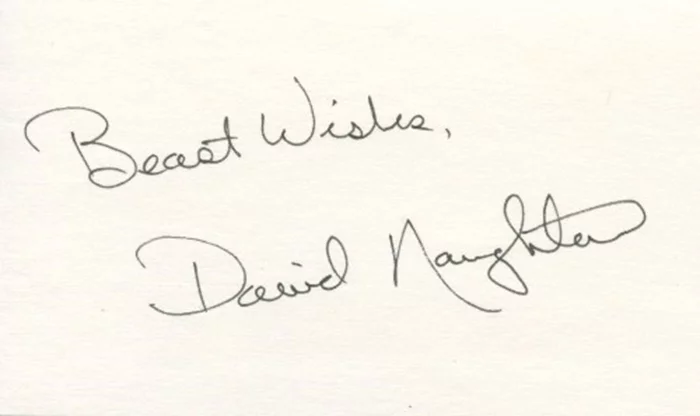 Beast Wishes,
David Naughton